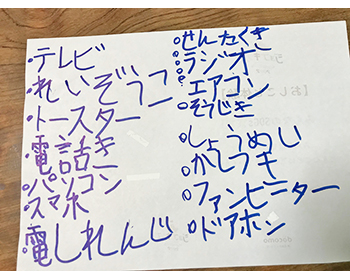 ・テレビ
・れいぞうこ
・トースター
・電話き
・パソコン
・スマホ
・電しれんじ
・せんたくき
・ラジオ
・エアコン
・そうじき
・しょうめい
・かしつキ
・ファンヒーター
・ドアホン